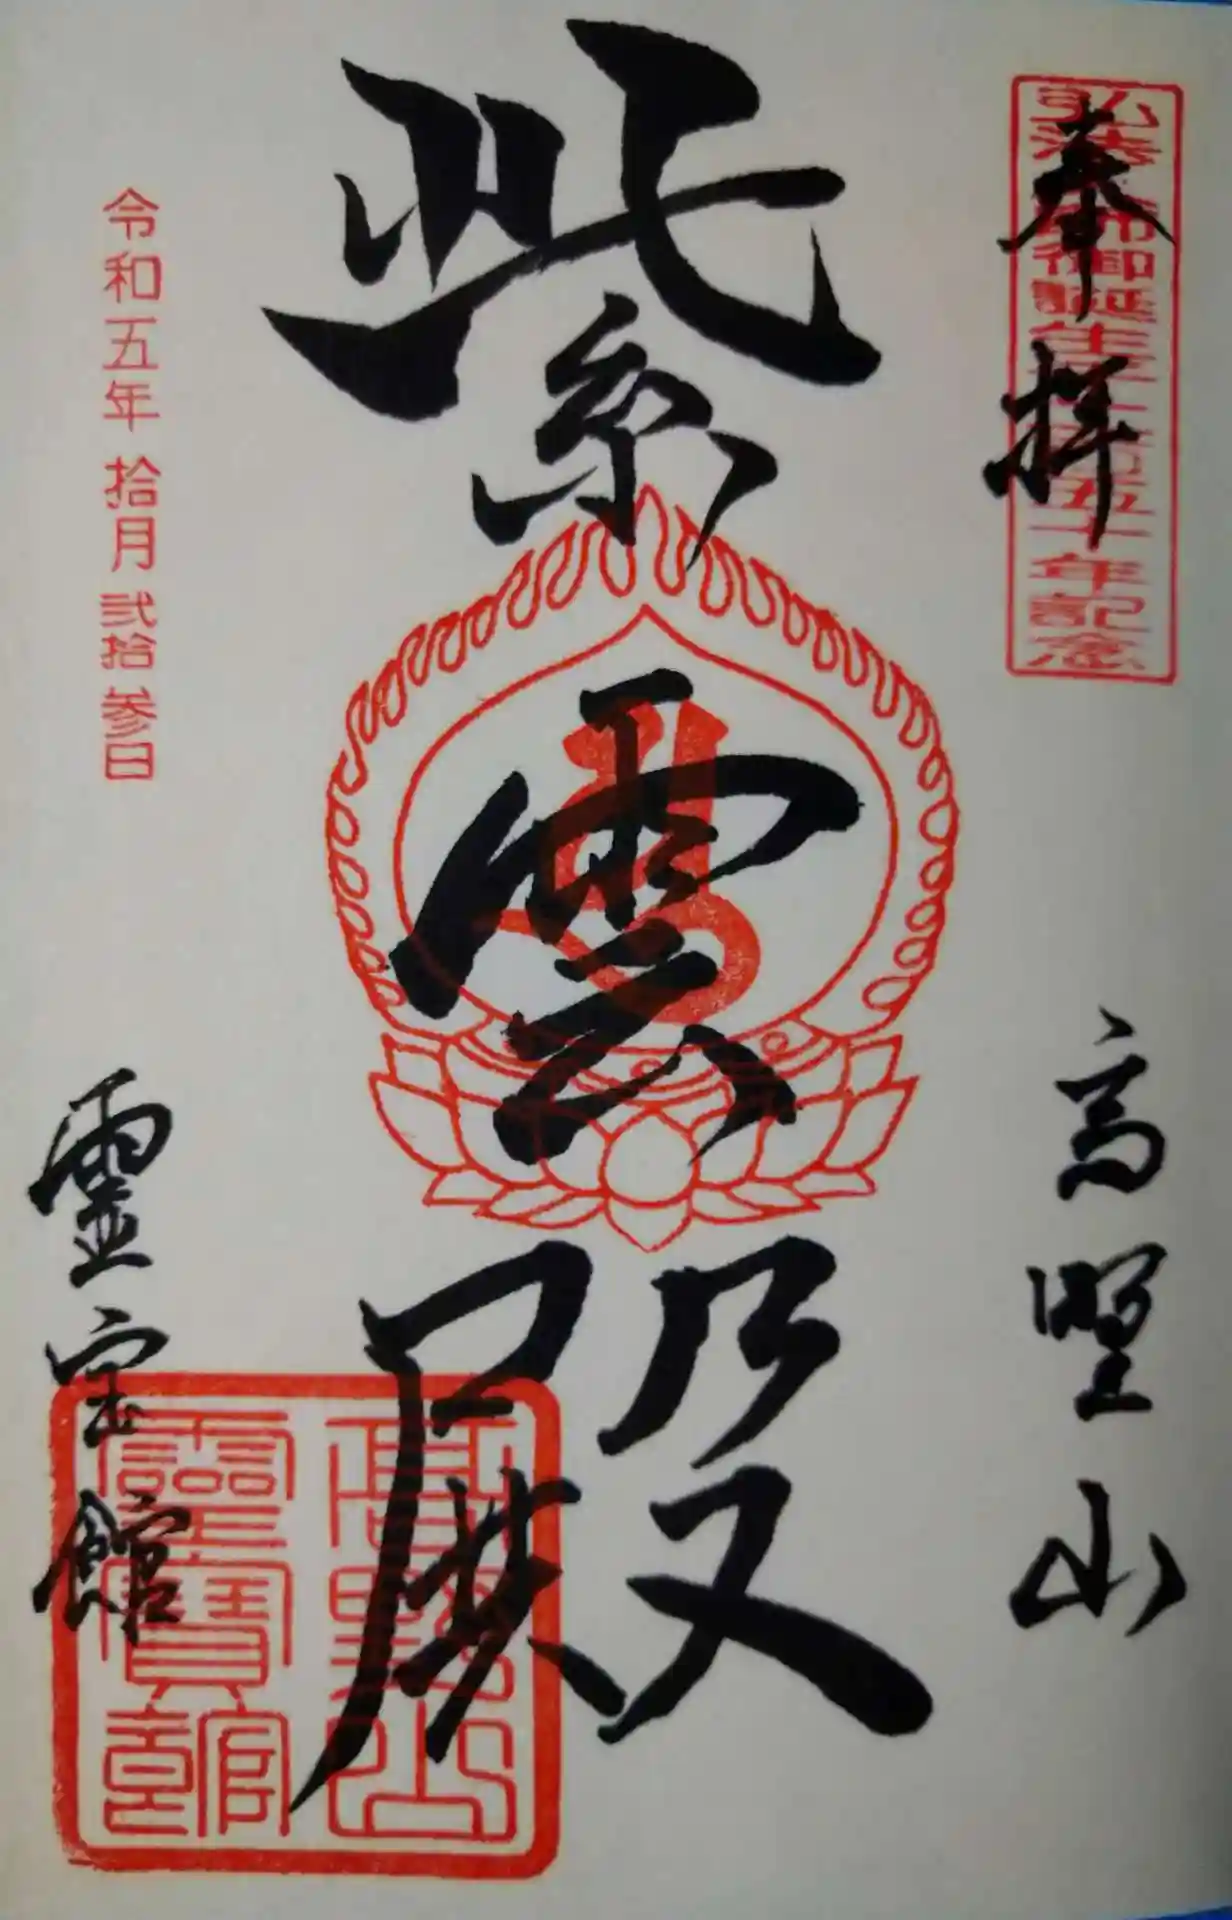 奉拝
弘法大師御誕生千二百五十年記念
高野山
紫雲殿
高野山
靈寶館
令和五年 拾月 弐拾参日
霊宝館